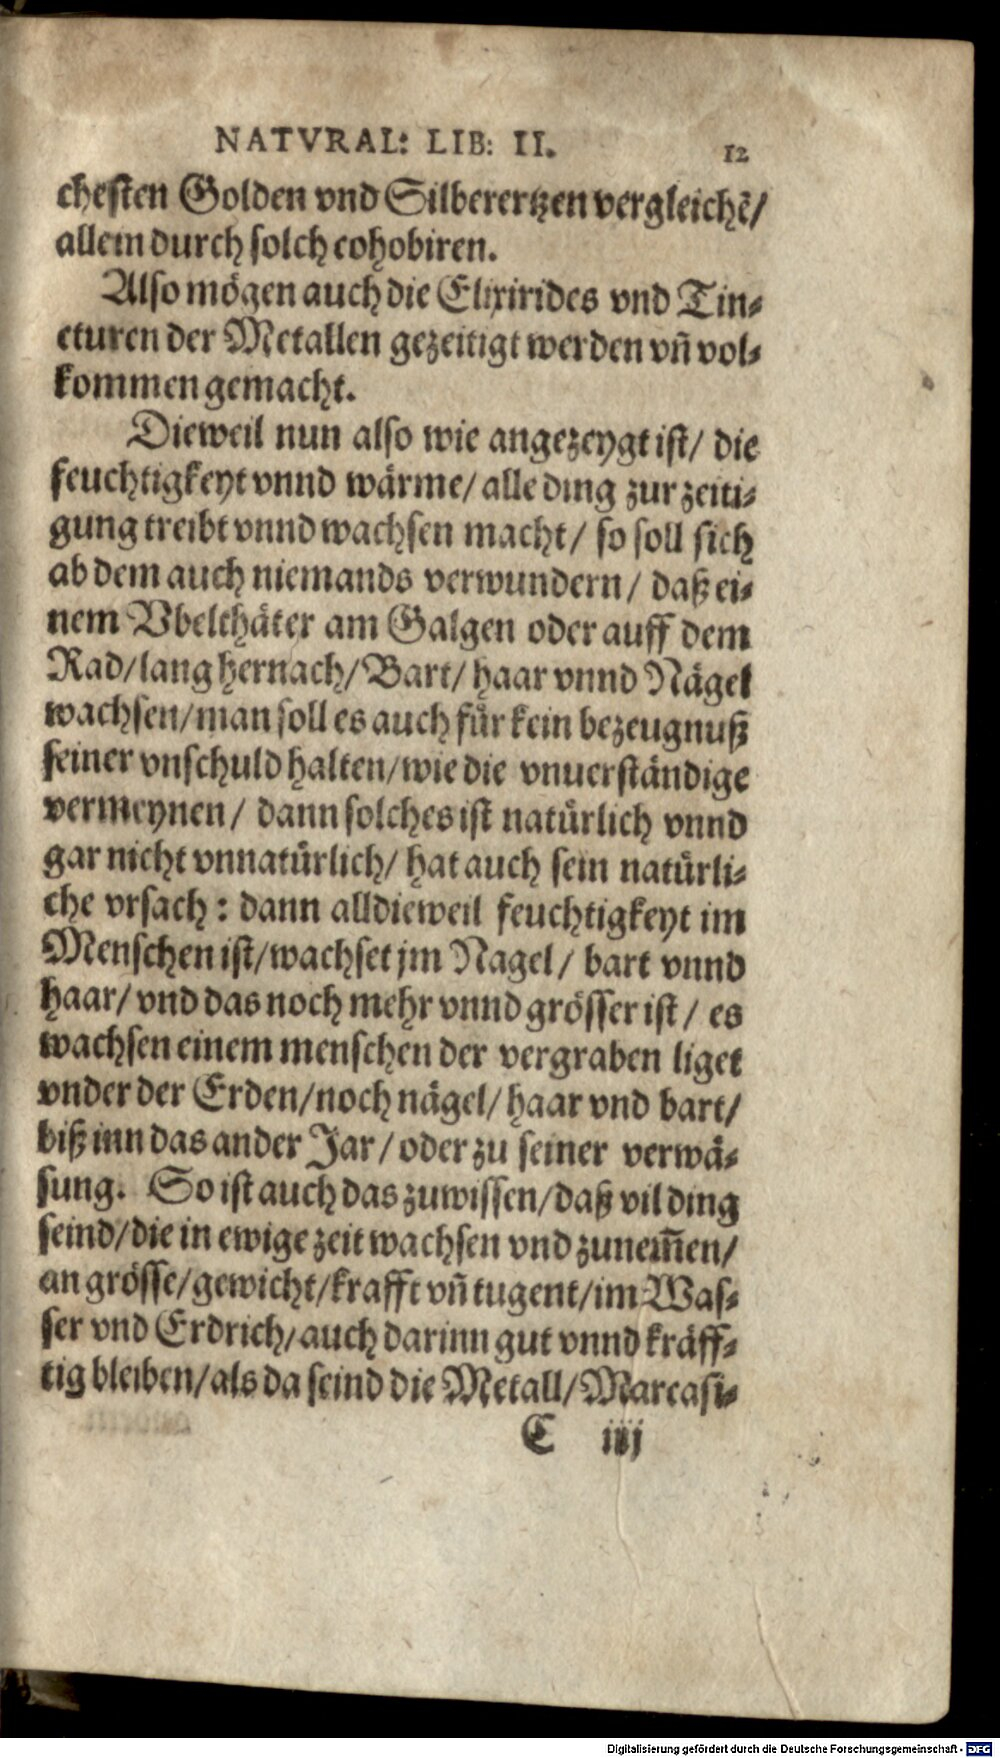 NATVRAL: LIB: II. 12
chesten Golden vnd Silberertzen vergleichẽ/
allein durch solch cohobiren.
Also mögen auch die Elixirides vnd Tin-
cturen der Metallen gezeitigt werden vñ vol-
kommen gemacht.
Dieweil nun also wie angezeygt ist/ die
feuchtigkeyt vnnd wärme/ alle ding zur zeiti-
gung treibt vnnd wachsen macht/ so soll sich
ab dem auch niemands verwundern/ daß ei-
nem Vbelthäter am Galgen oder auff dem
Rad/ lang hernach/ Bart/ haar vnnd Nägel
wachsen/ man soll es auch für kein bezeugnuß
seiner vnschuld halten/ wie die vnuerständige
vermeynen/ dann solches ist natürlich vnnd
gar nicht vnnatürlich/ hat auch sein natürli-
che vrsach: dann alldieweil feuchtigkeyt im
Menschen ist/ wachset jm Nagel/ bart vnnd
haar/ vnd das noch mehr vnnd grösser ist/ es
wachsen einem menschen der vergraben liget
vnder der Erden/ noch nägel/ haar vnd bart/
biß inn das ander Jar/ oder zu seiner verwä-
sung. So ist auch das zuwissen/ daß vil ding
seind/ die in ewige zeit wachsen vnd zunem̃en/
an grösse/ gewicht/ krafft vñ tugent/ im Was-
ser vnd Erdrich/ auch darinn gut vnnd kräff-
tig bleiben/ als da seind die Metall/ Marcasi-
C iiij
Digitalisierung gefördert durch die Deutsche Forschungsgemeinschaft - DFG